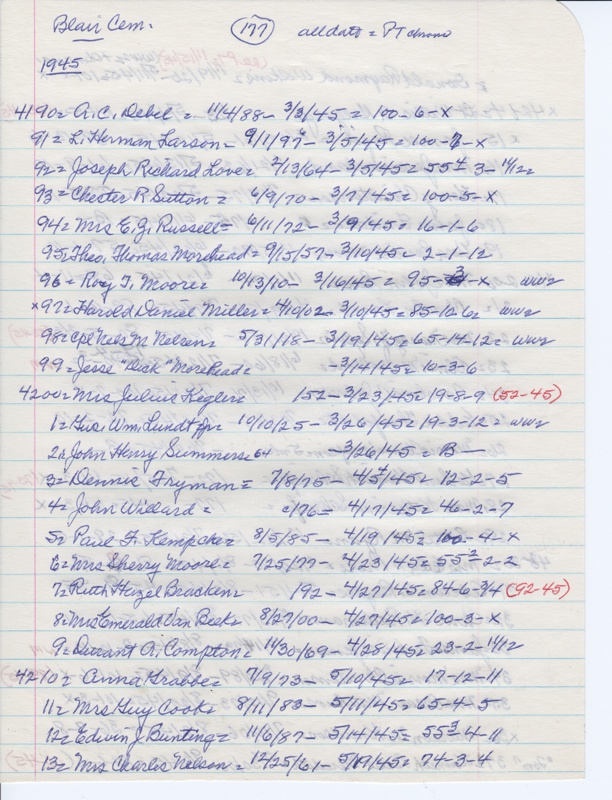 Blair Cem. 177 all data = PT chrono
1945
4190= A.C. Debel = 11/4/88 - 3/3/45 = 100-6-X
91= L. Herman Larson= 9/1/97 - 3/5/45 = 100-7-X
92= Joseph Richard Love= 2/13/64 - 3/5/45 = 55 4 3- 11/12
93= Chester R Sutton = 6/9/70 - 3/7/45 = 100-5-X
94= Mrs E. G. Russell= 6/11/72 - 3/9/45 = 16-1-6
95= Theo. Thomas Morehead = 9/15/57 - 3/10/45= 2-1-12
96= Roy T. Moore= 10/13/10- 3/16/45 = 95-3-X WW2
x97= Harold Daniel Miller= 4/10/02- 3/10/45= 85-10-6= WW2
98= Cpl Nels M Nelsen= 5/31/18- 3/19/45= 65-14-12= WW2
99= Jesse "Dick" Morehead= -3/14/45= 10-3-6
4200= Mrs Julius Kegler= 152- 3/23/45= 19-8-9 (52-45)
1= Gus. Wm. Lundt Jr= 10/10/25- 3/26/45= 19-3-12= WW2
2= John Henry Summers= 64 -3/26/45 = B-
3= Dennis Fryman= 7/8/75- 4/5/45= 12-2-5
4= John Willard= c/76= 4/17/45= 46-2-7
5= Paul F. Kempcke= 8/5/85- 4/19/45= 100-4-X
6= Mrs Sherry Moore= 7/25/77- 4/23/45= 55 2 2-2
7= Ruth Hazel Bracken= 192- 4/27/45= 84-6-3/4 (92-45)
8= Mrs Emerald Van Beek= 8/27/00- 4/27/45= 100-3-X
9= Durrant A. Compton= 11/30/69- 4/28/45= 23-2-11/12
4210= Anna Grabbe= 7/9/73- 5/10/45= 17-12-11
11= Mrs Guy Cook= 8/11/83- 5/11/45= 65-4-5
12= Edwin J. Bunting= 11/6/87- 5/14/45= 55 3 4-11
13= Mrs Charles Nelson= 12/25/61- 5/19/45= 74-3-4